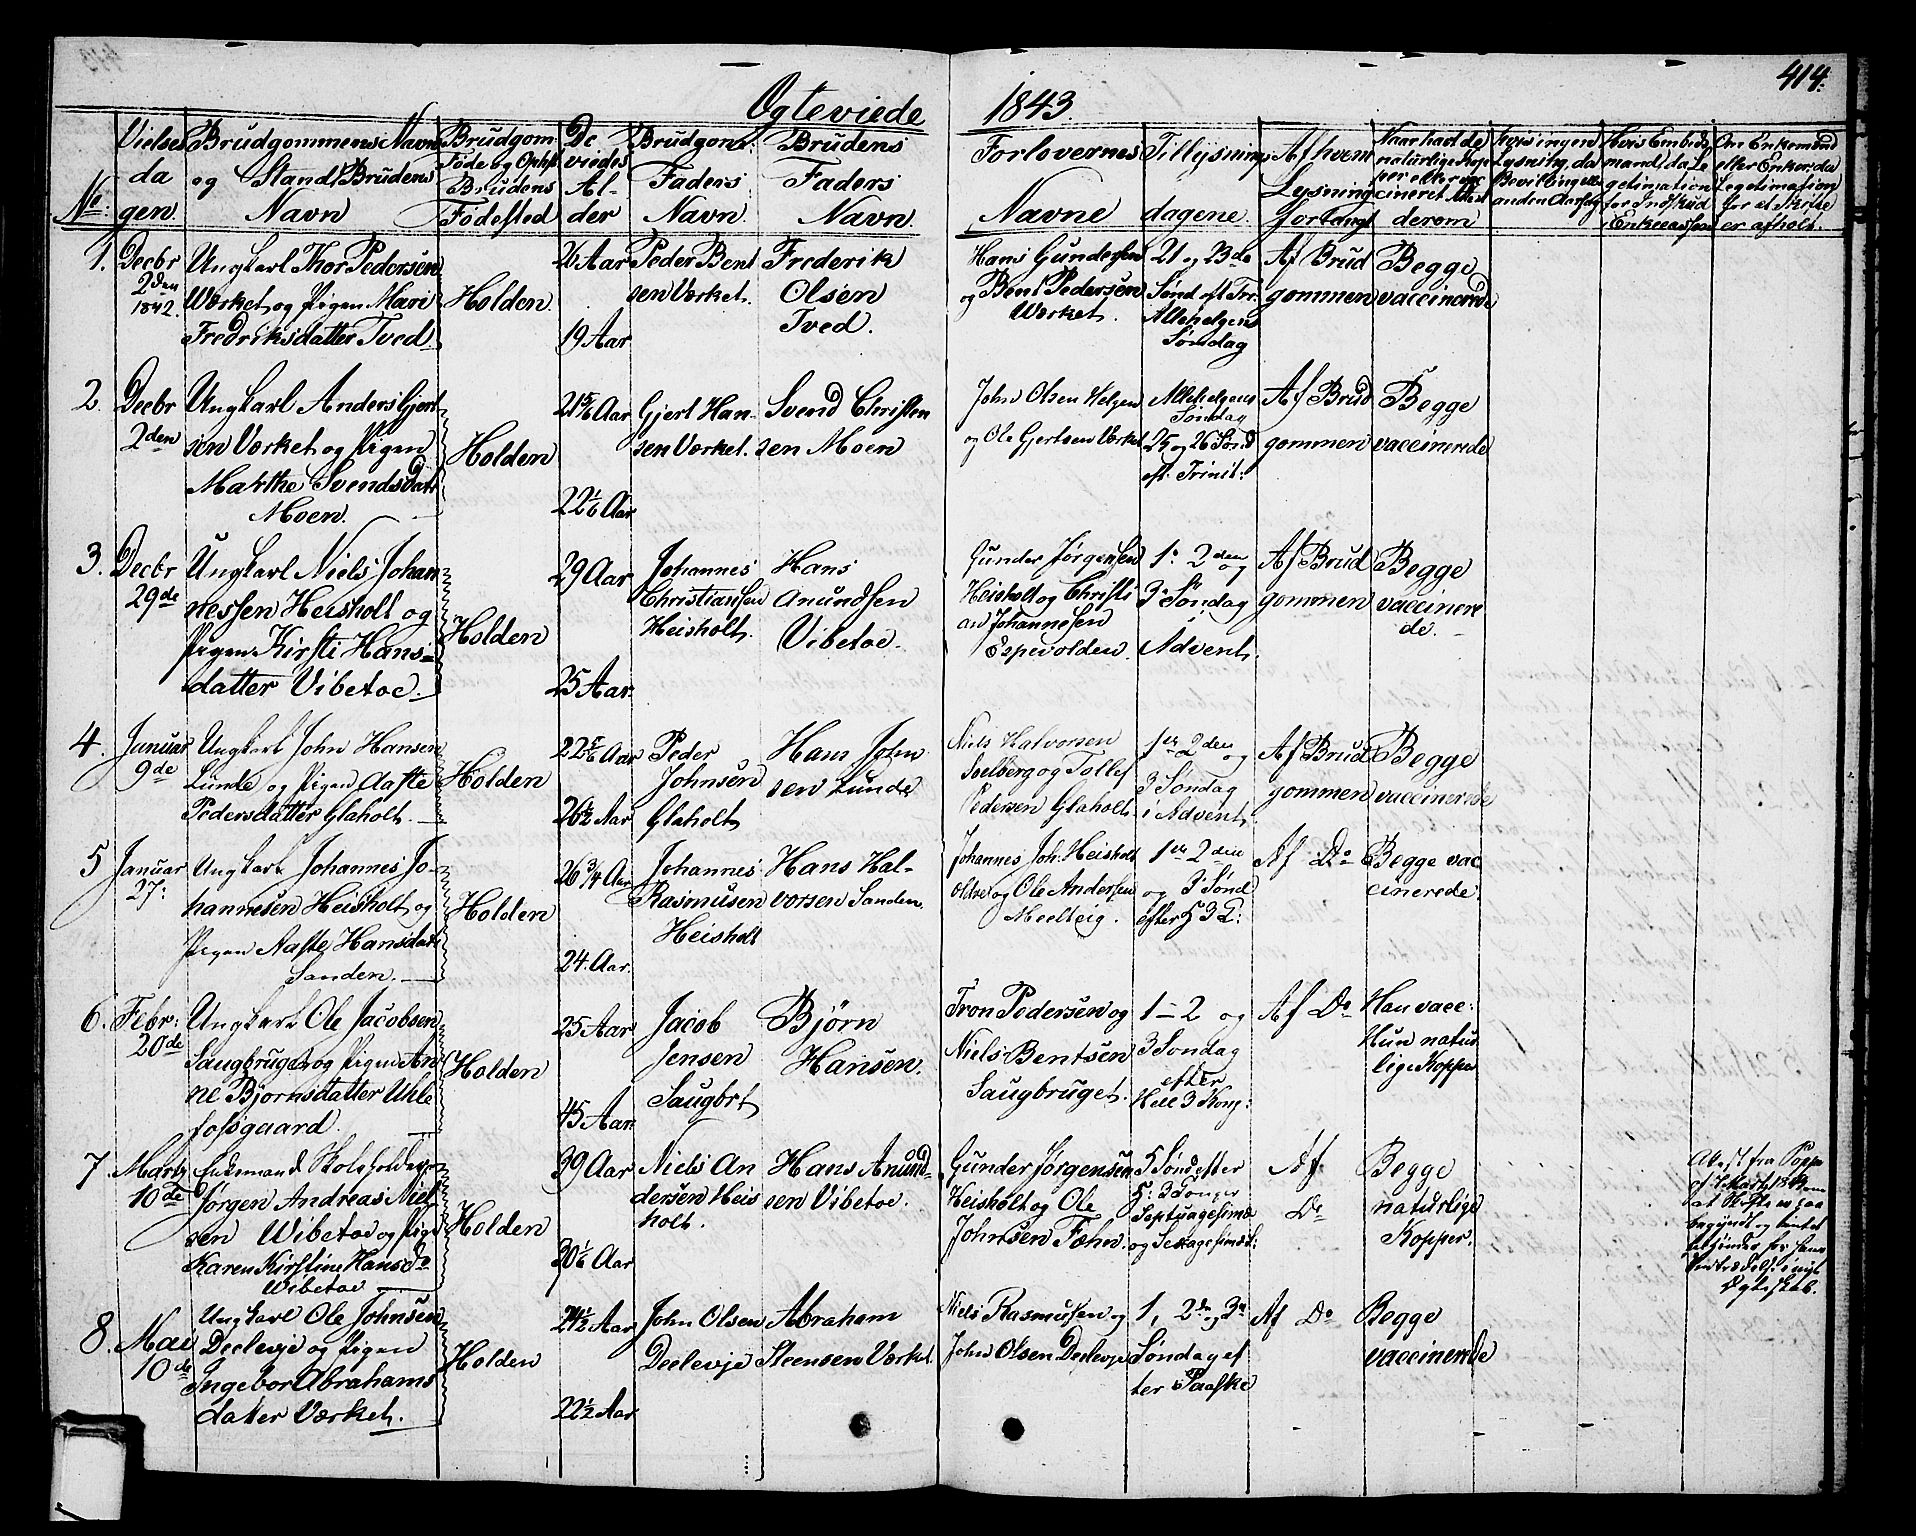 414.
Ogteviede 1843.
No:
Vielses
da
gen.
Brudgommens Navn
og Stand, Brudens
Navn
Brudgom
Føde og Ophst
Brudens
Fødested
De
viedes
Al-
der
Brudgoms
Faders
Navn
Brudens
Faders
Navn.
Forlovernes
Navne
Tillysnings
dagene.
Af hvem
Lysning
forlangt
Naar havde
naturlige Kop
per eller vac
cineret Attest
derom
Hvis ingen
Lysning, da
Bevilling elle
anden Aarsag
Hvis Embeds
mand da Le
gitimation
for Indskud
i Enkecassen
Om Enkemand
eller Enke da
Legitimation
for at Skifte
er afholt.
1.
Decbr
2den
1842.
Ungkarl Thor Pedersen
Værket og Pigen Mari
Fredriksdatter Tved.
Holden.
26 Aar
19 Aar
Peder Bent
sen Værket.
Frederik
Olsen
Tved.
Hans Gundersen
og Bent Pedersen
Værket.
21 og 23de
Sønd eft Tri:
Allehelgens
Søndag
Af Brud
gommen
Begge
vaccinerede
2.
Decbr
2den
Ungkarl Anders Gjert
sen Værket og Pigen
Marthe Svendsdatt
Moen.
Holden
21 5/6 Aar
22 1/6 Aar
Gjert Han-
sen Værket.
Svend Christen
sen Moen
John Olsen Helgen
og Ole Gjertsen Værket
Allehelgens
Søndag
25 og 26 Sønd
eft. Trinit:
Af Brud
gommen
Begge
vaccinerede
3.
Decbr
29de
Ungkarl Niels Johan
nessen Heisholt og
Pigen Kirsti Hans-
datter Vibetoe.
Holden
29 Aar
25 Aar.
Johannes
Christiansen
Heisholt.
Hans
Anundsen
Vibetoe.
Gunder Jørgensen
Heisholt og Christi
an Johannesen
Espevolden.
1. 2den og
3 Søndag
i
Advent.
Af Brud
gommen
Begge
vaccinere
de.
4.
Januar
9de
Ungkarl John Hansen
Lunde og Pigen Aaste
Pedersdatter Glaholt.
Holden
22 5/6 Aar
26 1/2 Aar
Peder
Johnsen
Glaholt
Hans John
sen Lunde
Niels Halvorsen
Soelberg og Tollef
Pedersen Glaholt.
1ste 2den og
3 Søndag
i Advent.
Af Brud
gommen
Begge
vaccinerede
5
Januar
27:
Ungkarl Johannes Jo-
hannesen Heisholt og
Pigen Aaste Hansdatt
Sanden.
Holden
26 3/4 Aar
24. Aar.
Johannes
Rasmusen
Heisholt
Hans Hal-
vorsen Sanden.
Johannes Joh: Heisholt
og Ole Andersen
Meelteig.
1ste 2den
og 3 Sønd
Efter
Af Do
Begge vac
cinerede.
6.
Febr:
20de
Ungkarl Ole Jacobsen
Saugbruget og Pigen An
ne Bjørnsdatter Uhle
fossgaard.
Holden
25 Aar
45 Aar
Jacob
Jensen
Saugbrt
Bjørn
Hansen.
Tron Pedersen og
Niels Bentsen
Saugbruget.
1 - 2 og
3 Søndag
efter
Hell 3 Kong:
Af Do
Han vacc:
Hun natur
lige Kopper
7
Marts
10de
Enkemand Skoleholder
Jørgen Andreas Niel
sen Wibetoe og Pige
Karen Kirstine Hans do
Wibetoe
Holden
39 Aar
30 1/6 Aar
Niels An
dersen Heis
holt.
Hans Anund-
sen Vibetoe.
Gunder Jørgensen
Heisholt og Ole
Johnsen Fæhn.
5 Sønd efter
Septuagesima
og Sexagesima:
Af
Do
Begge
naturlige
Kopper.
Attest fra
at Skifte er paa
begyndt og intet
til hinder for hans
Indtrædelse i nyt
Ægteskab.
8.
Mai
10de
Ungkarl Ole Johnsen
Deelevje og Pigen
Ingebor Abrahams
datter Værket.
Holden
24 1/2 Aar
22 1/2 Aar
John Olsen
Deelevje
Abraham
Steensen Værket.
Niels Rasmusen og
John Olsen Deelevje
1, 2de og 3e
Søndag ef
ter Paaske
Af Do
Begge
vaccinerede